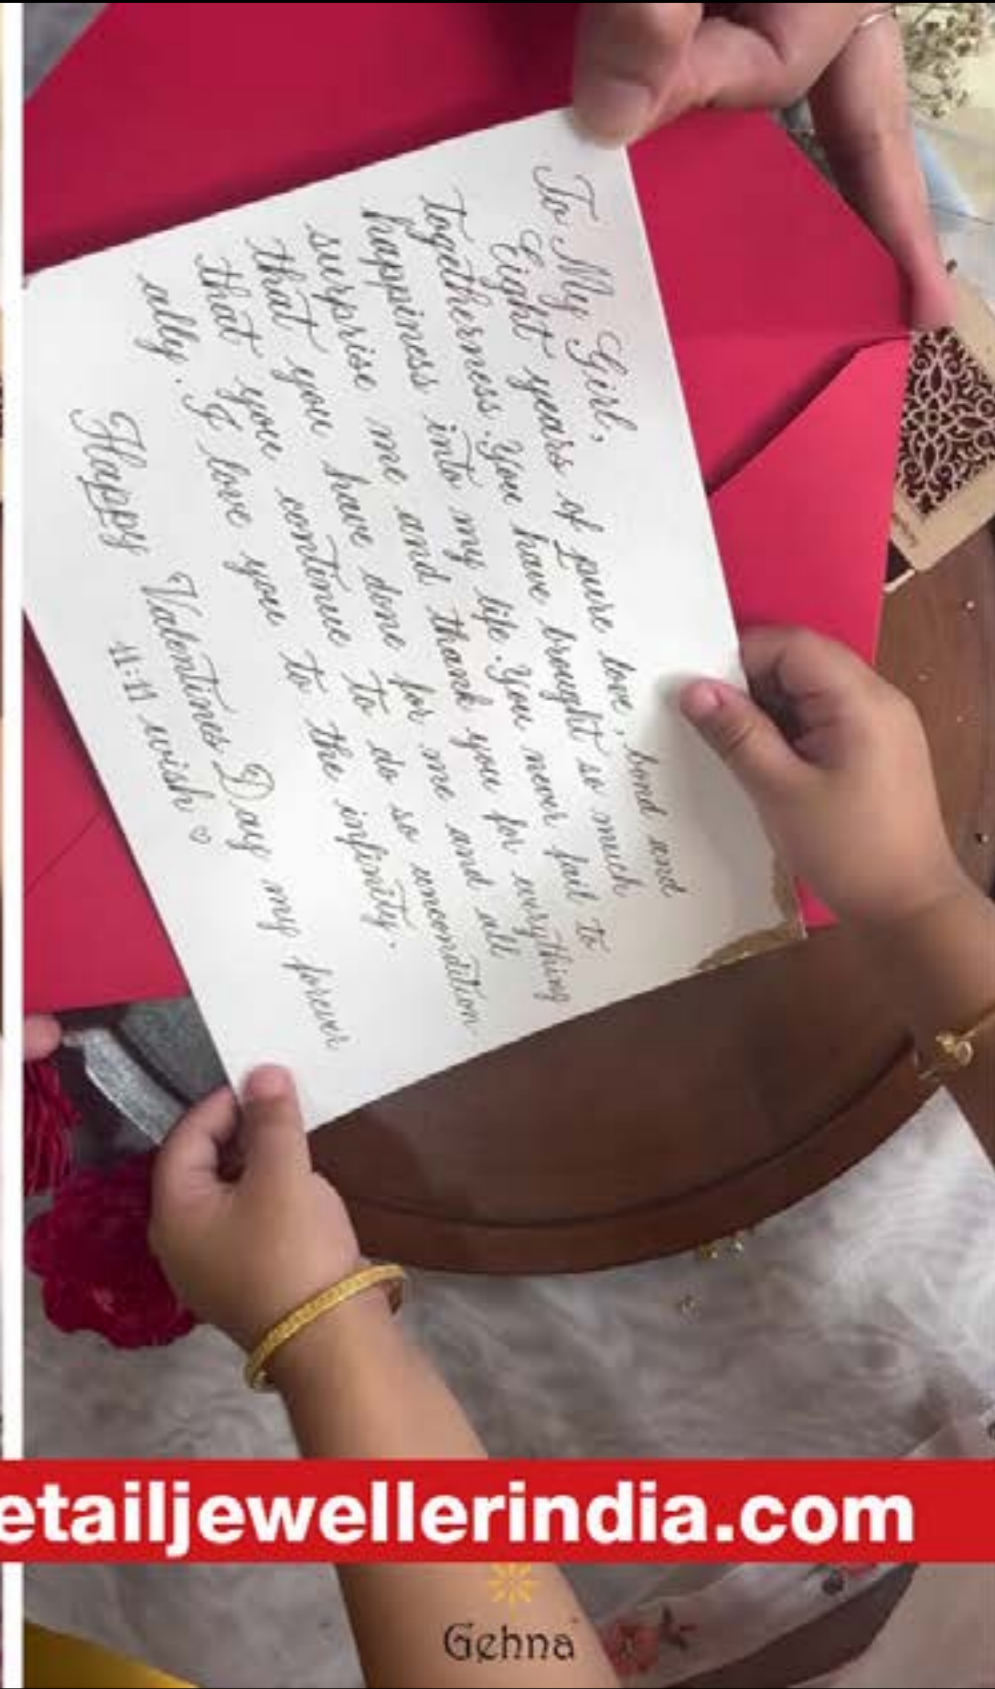 To My Girl,
Eight years of pure love, bond and
togetherness. You have brought so much
happiness into my life. You never fail to
surprise me and thank you for everything
that you have done for me and all
that you continue to do so uncondition
ally. I love you to the infinity.
Happy Valentines Day my forever
11:11 wish ♡
etailjewellerindia.com
Gehna